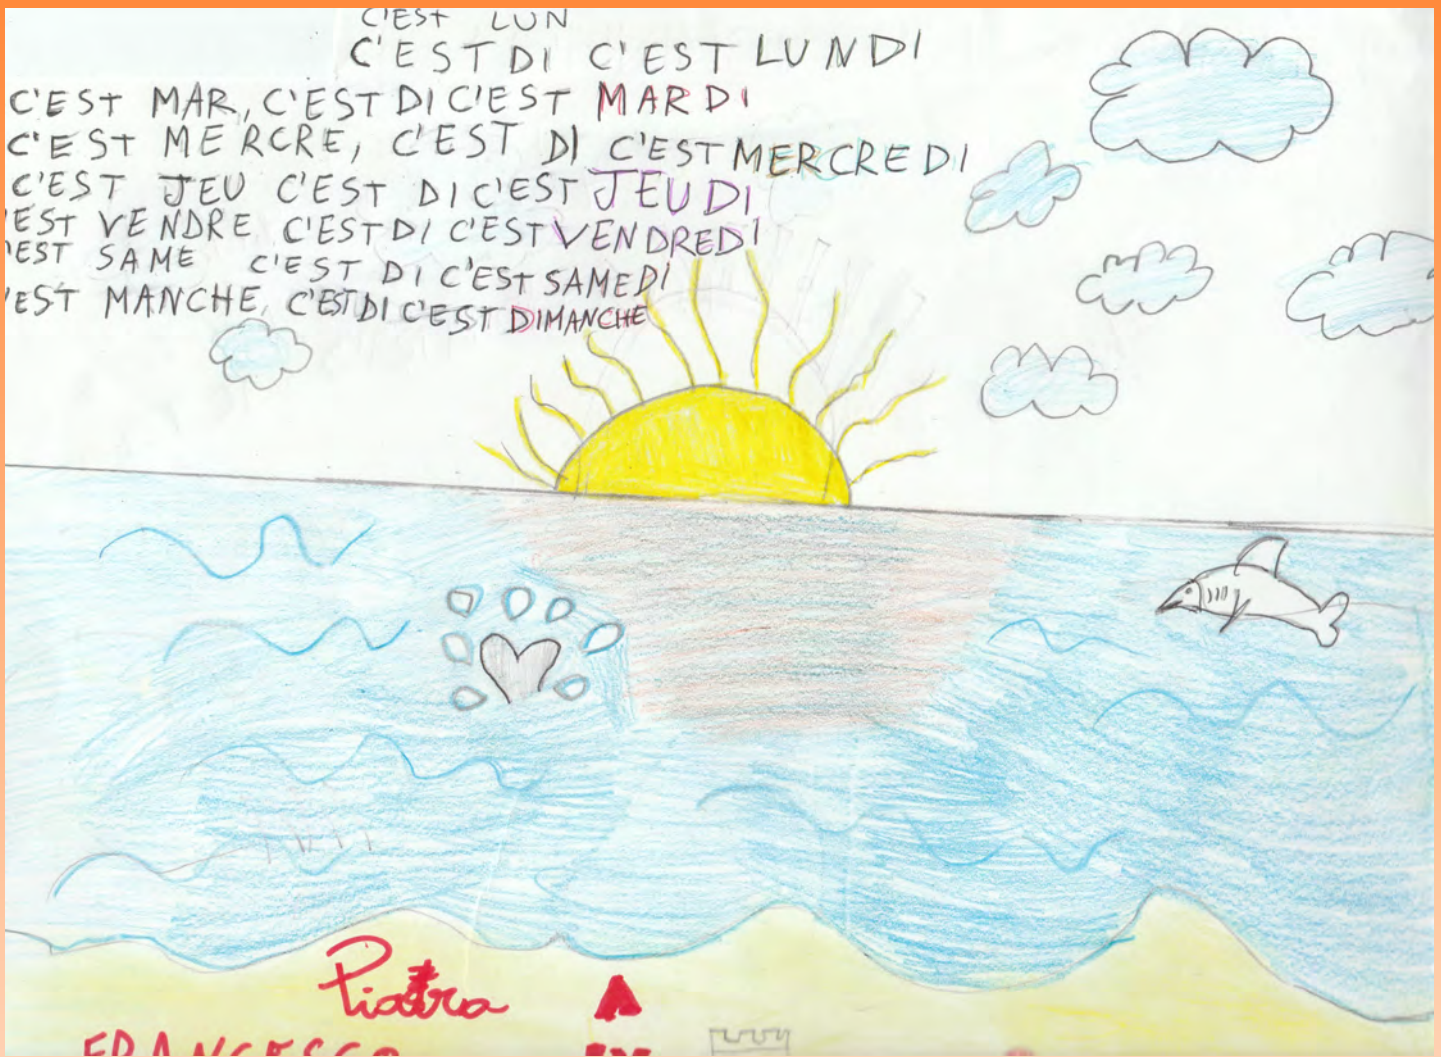 C'EST LUN
C'EST DI C'EST LUNDI
C'EST MAR, C'EST DI C'EST MARDI
C'EST MERCRE, C'EST DI C'EST MERCREDI
C'EST JEU C'EST DI C'EST JEUDI
'EST VENDRE C'EST DI C'EST VENDREDI
'EST SAME C'EST DI C'EST SAMEDI
'EST MANCHE, C'EST DI C'EST DIMANCHE
FRANCESCO